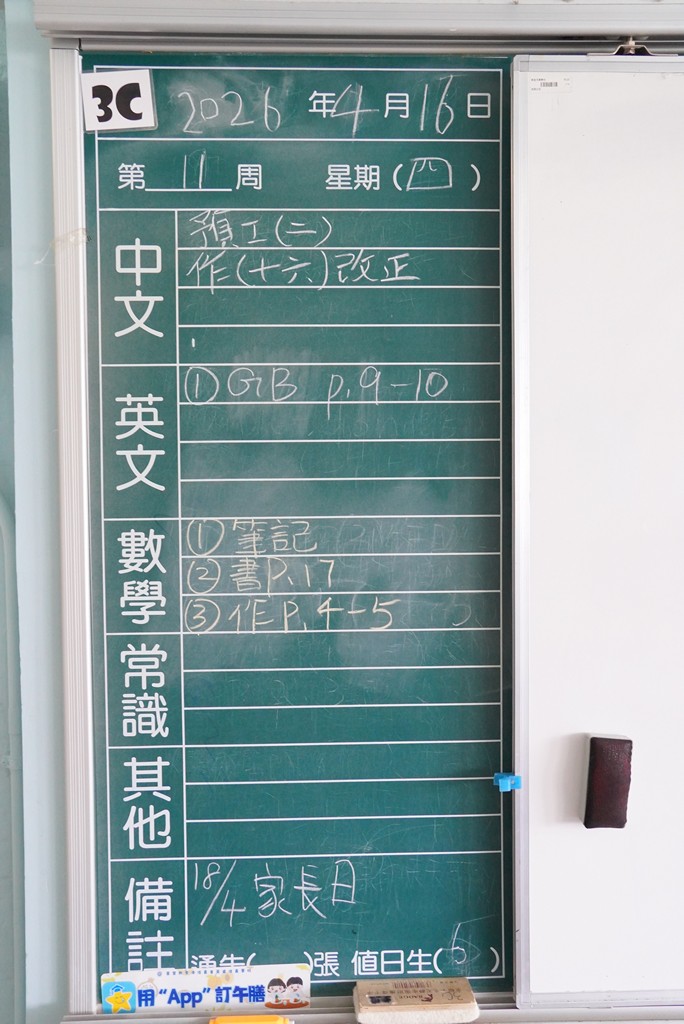 3C
2026年4月16日
第11周 星期(四)
中文
預工(二)
作(十六)改正
英文
① GB p.9-10
數學
① 筆記
② 書P.17
③ 作P.4-5
常識
其他
備註
18/4 家長日
通告( )張 值日生(6)
用“App”訂午膳